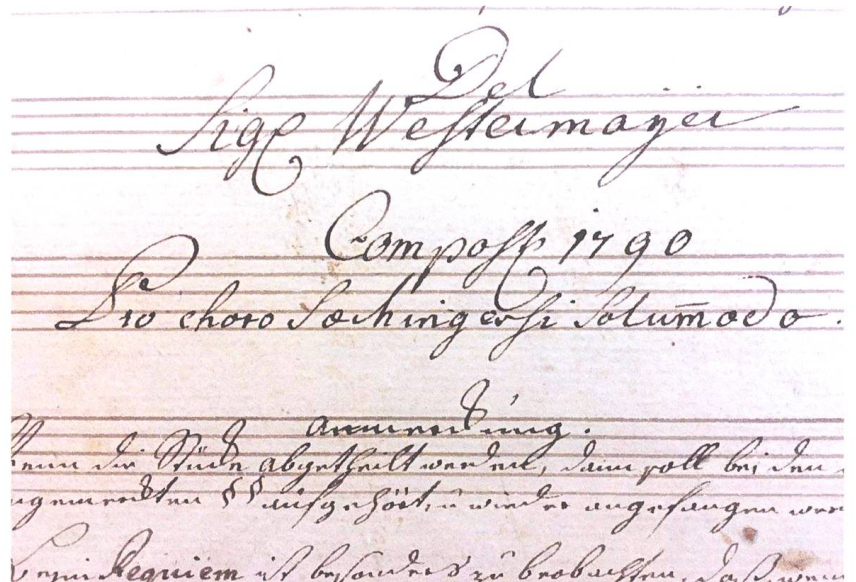 Del
Sigr Westermayer
Compost 1790
Pro choro Sæckingensi Solum̄odo.
Anmerckung.
Wenn die Stücke abgetheilt werden, dann soll bei den
angemerckten §§ aufgehört, u wieder angefangen
Beim Requiem ist besonders zu beobachten, daß wenn